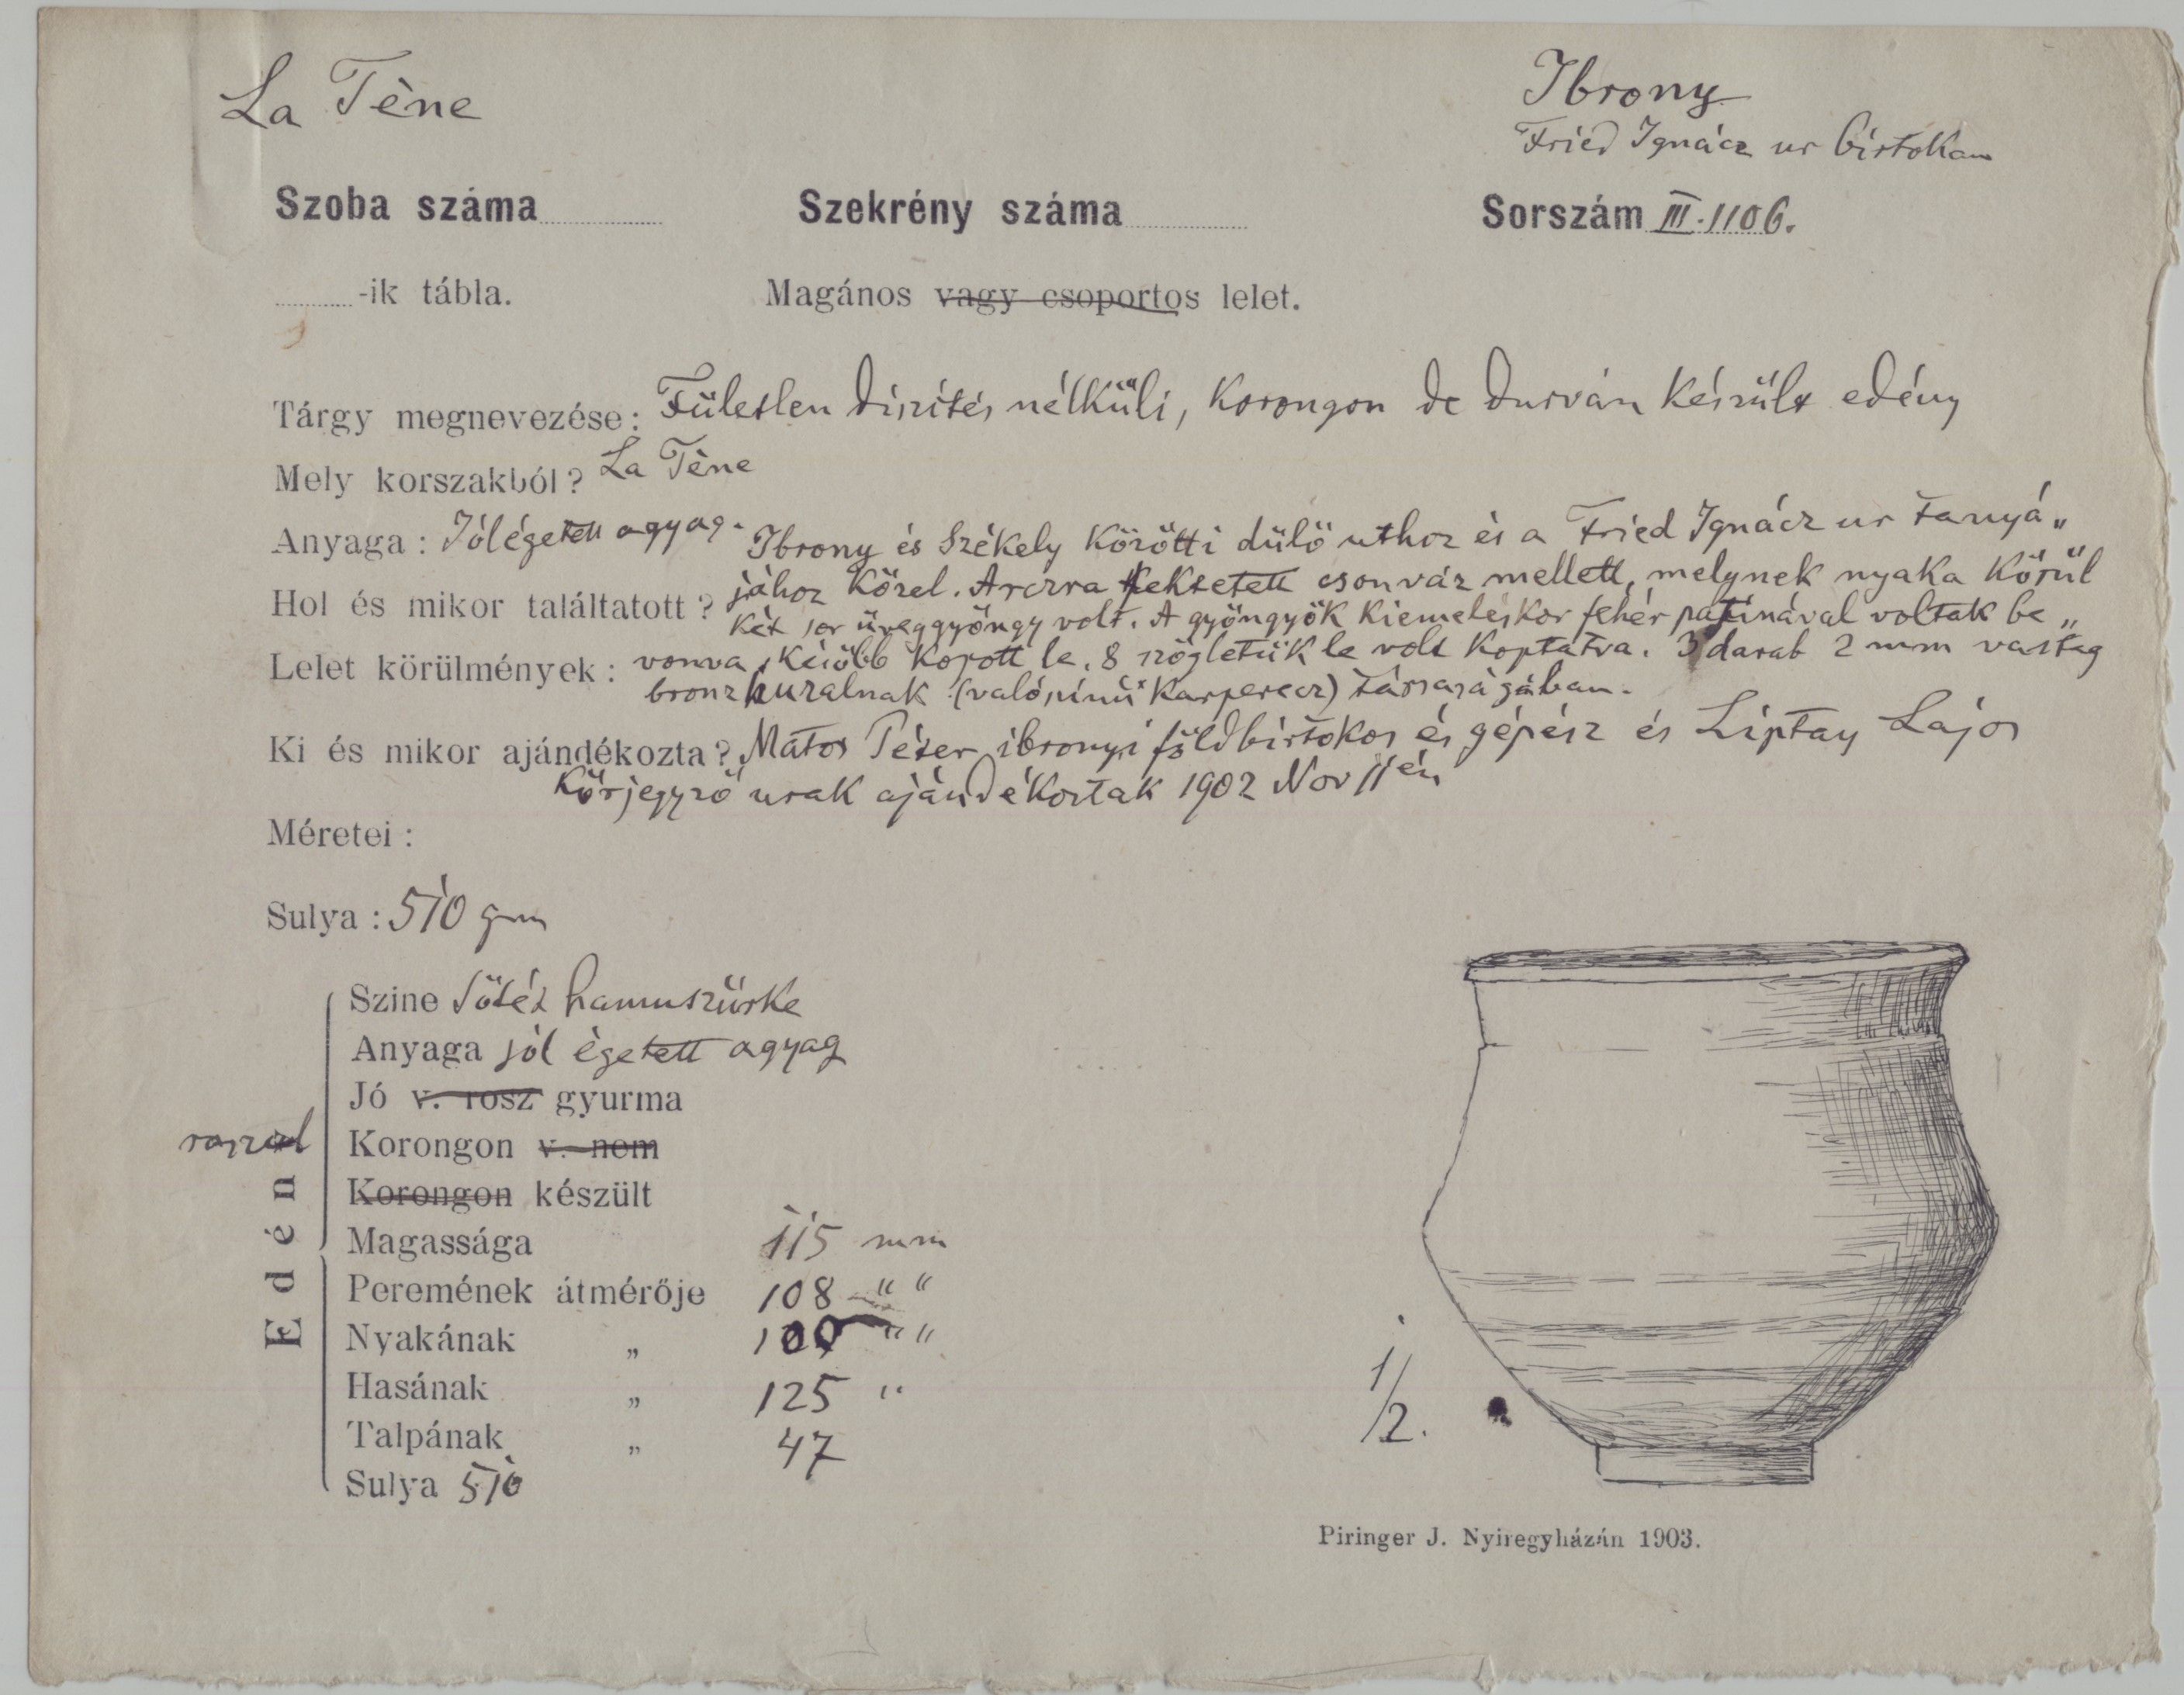 La Tène
Ibrony
Fried Ignácz ur birtokan
Szoba száma
Szekrény száma
Sorszám III.1106.
-ik tábla.
Magános vagy csoportos lelet.
Tárgy megnevezése: Fületlen diszítés nélküli, korongon de durván készült edény
Mely korszakból? La Tène
Anyaga: Jólégetett agyag.
Ibrony és Székely közötti dülő uthoz és a Fried Ignácz ur tanyá„
Hol és mikor találtatott? jához közel. Arczra fektetett csonváz mellett, melynek nyaka körül
két sor üveggyöngy volt. A gyöngyök kiemeléskor fehér patinával voltak be„
Lelet körülmények: vonva, később kopott le. 8 szögletük le volt koptatva. 3 darab 2 mm vastag
bronz huzalnak (valószinű karperecz) társaságában.
Ki és mikor ajándékozta? Mátos Péter ibronyi földbirtokos és gépész és Liptay Lajos
körjegyző urak ajándékoztak 1902 Nov 11 én
Méretei:
Sulya: 510 gm
Edén
Szine sötét hamuszürke
Anyaga jól égetett agyag
Jó v. rosz gyurma
rosszul Korongon v. nem
Korongon készült
Magassága 115 mm
Peremének átmérője 108 " "
Nyakának „ 100 " "
Hasának „ 125 "
Talpának „ 47
Sulya 510
1/2.
Piringer J. Nyiregyházán 1903.